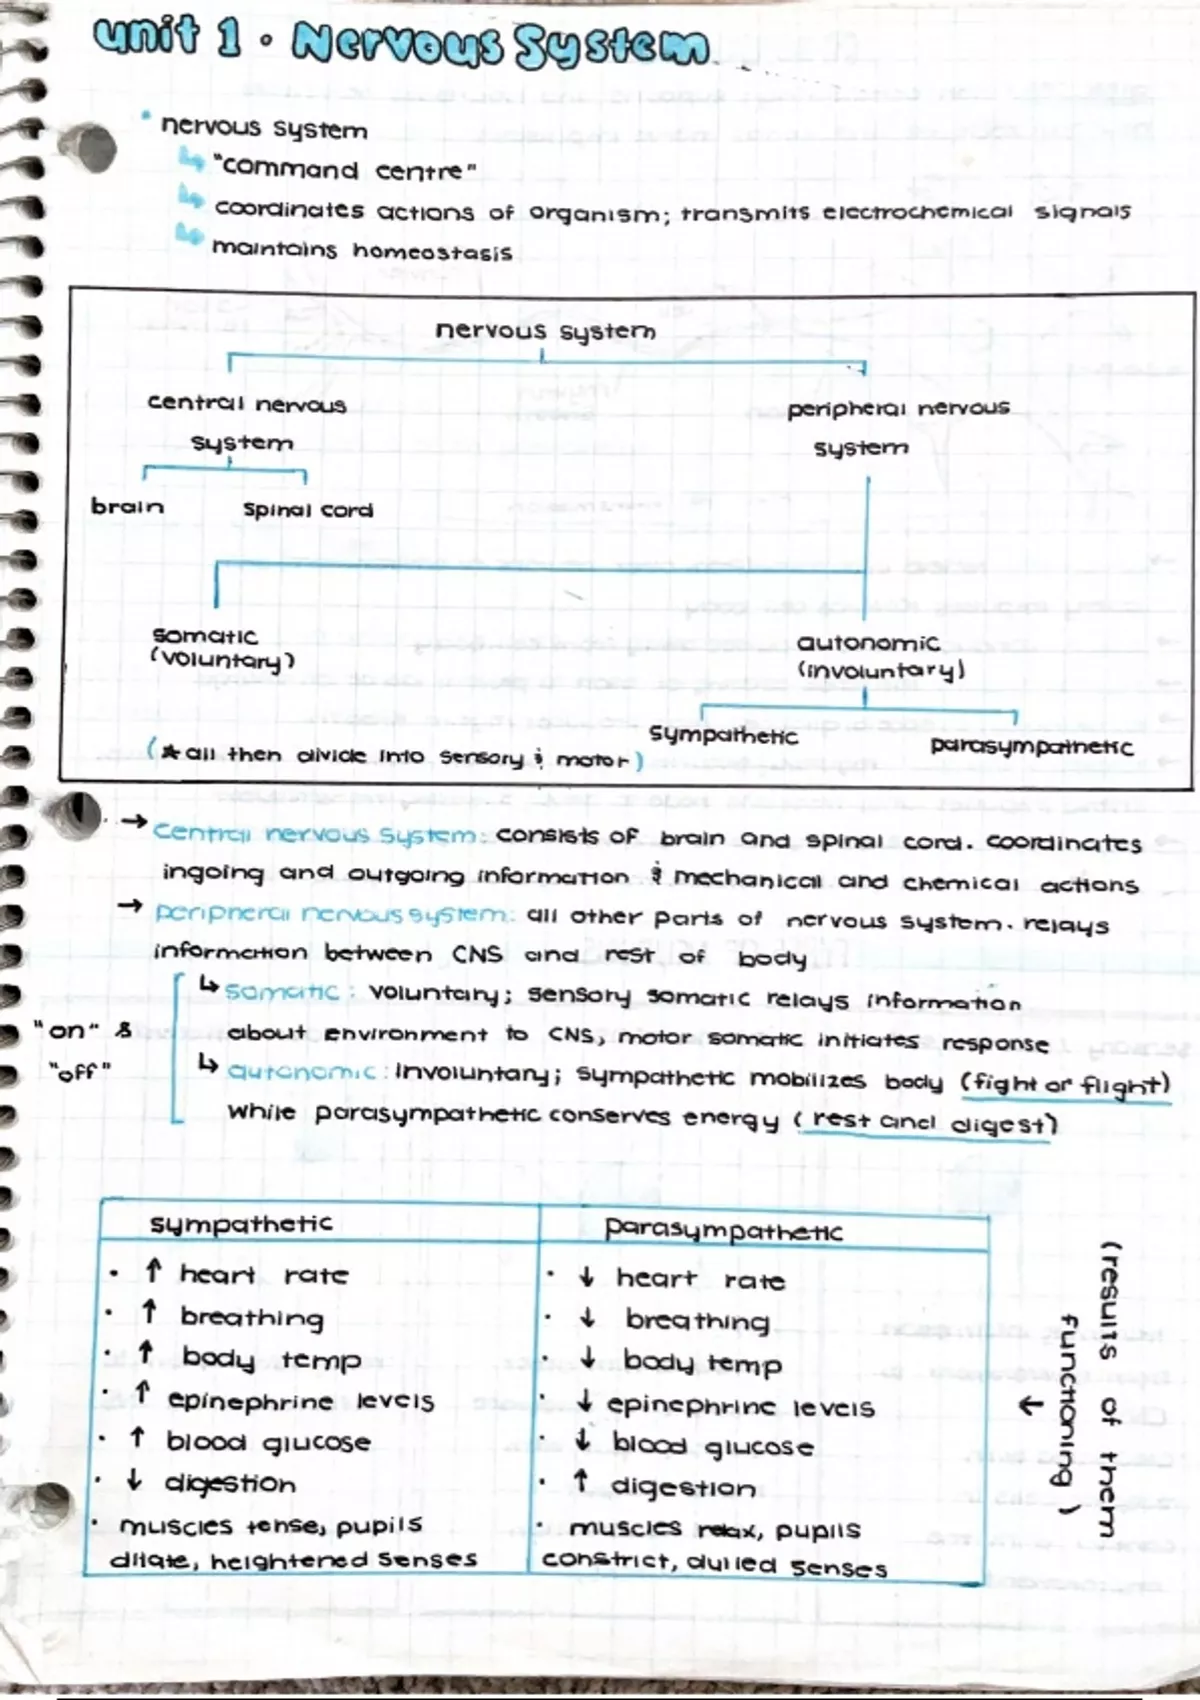 unit 1 • Nervous System
• nervous system
↳ "command centre"
↳ coordinates actions of organism; transmits electrochemical signals
↳ maintains homeostasis
nervous system
central nervous system
peripheral nervous system
brain
spinal cord
somatic (voluntary)
autonomic (involuntary)
sympathetic
parasympathetic
(★ all then divide into sensory & motor)
→ central nervous system: consists of brain and spinal cord. coordinates
ingoing and outgoing information & mechanical and chemical actions
→ peripheral nervous system: all other parts of nervous system. relays
information between CNS and rest of body
↳ somatic: voluntary; sensory somatic relays information
about environment to CNS, motor somatic initiates response
"on" &
"off"
↳ autonomic: involuntary; sympathetic mobilizes body (fight or flight)
while parasympathetic conserves energy (rest and digest)
sympathetic
• ↑ heart rate
• ↑ breathing
• ↑ body temp
• ↑ epinephrine levels
• ↑ blood glucose
• ↓ digestion
• muscles tense, pupils
dilate, heightened senses
parasympathetic
• ↓ heart rate
• ↓ breathing
• ↓ body temp
• ↓ epinephrine levels
• ↓ blood glucose
• ↑ digestion
• muscles relax, pupils
constrict, dulled senses
(results of them
functioning)
←